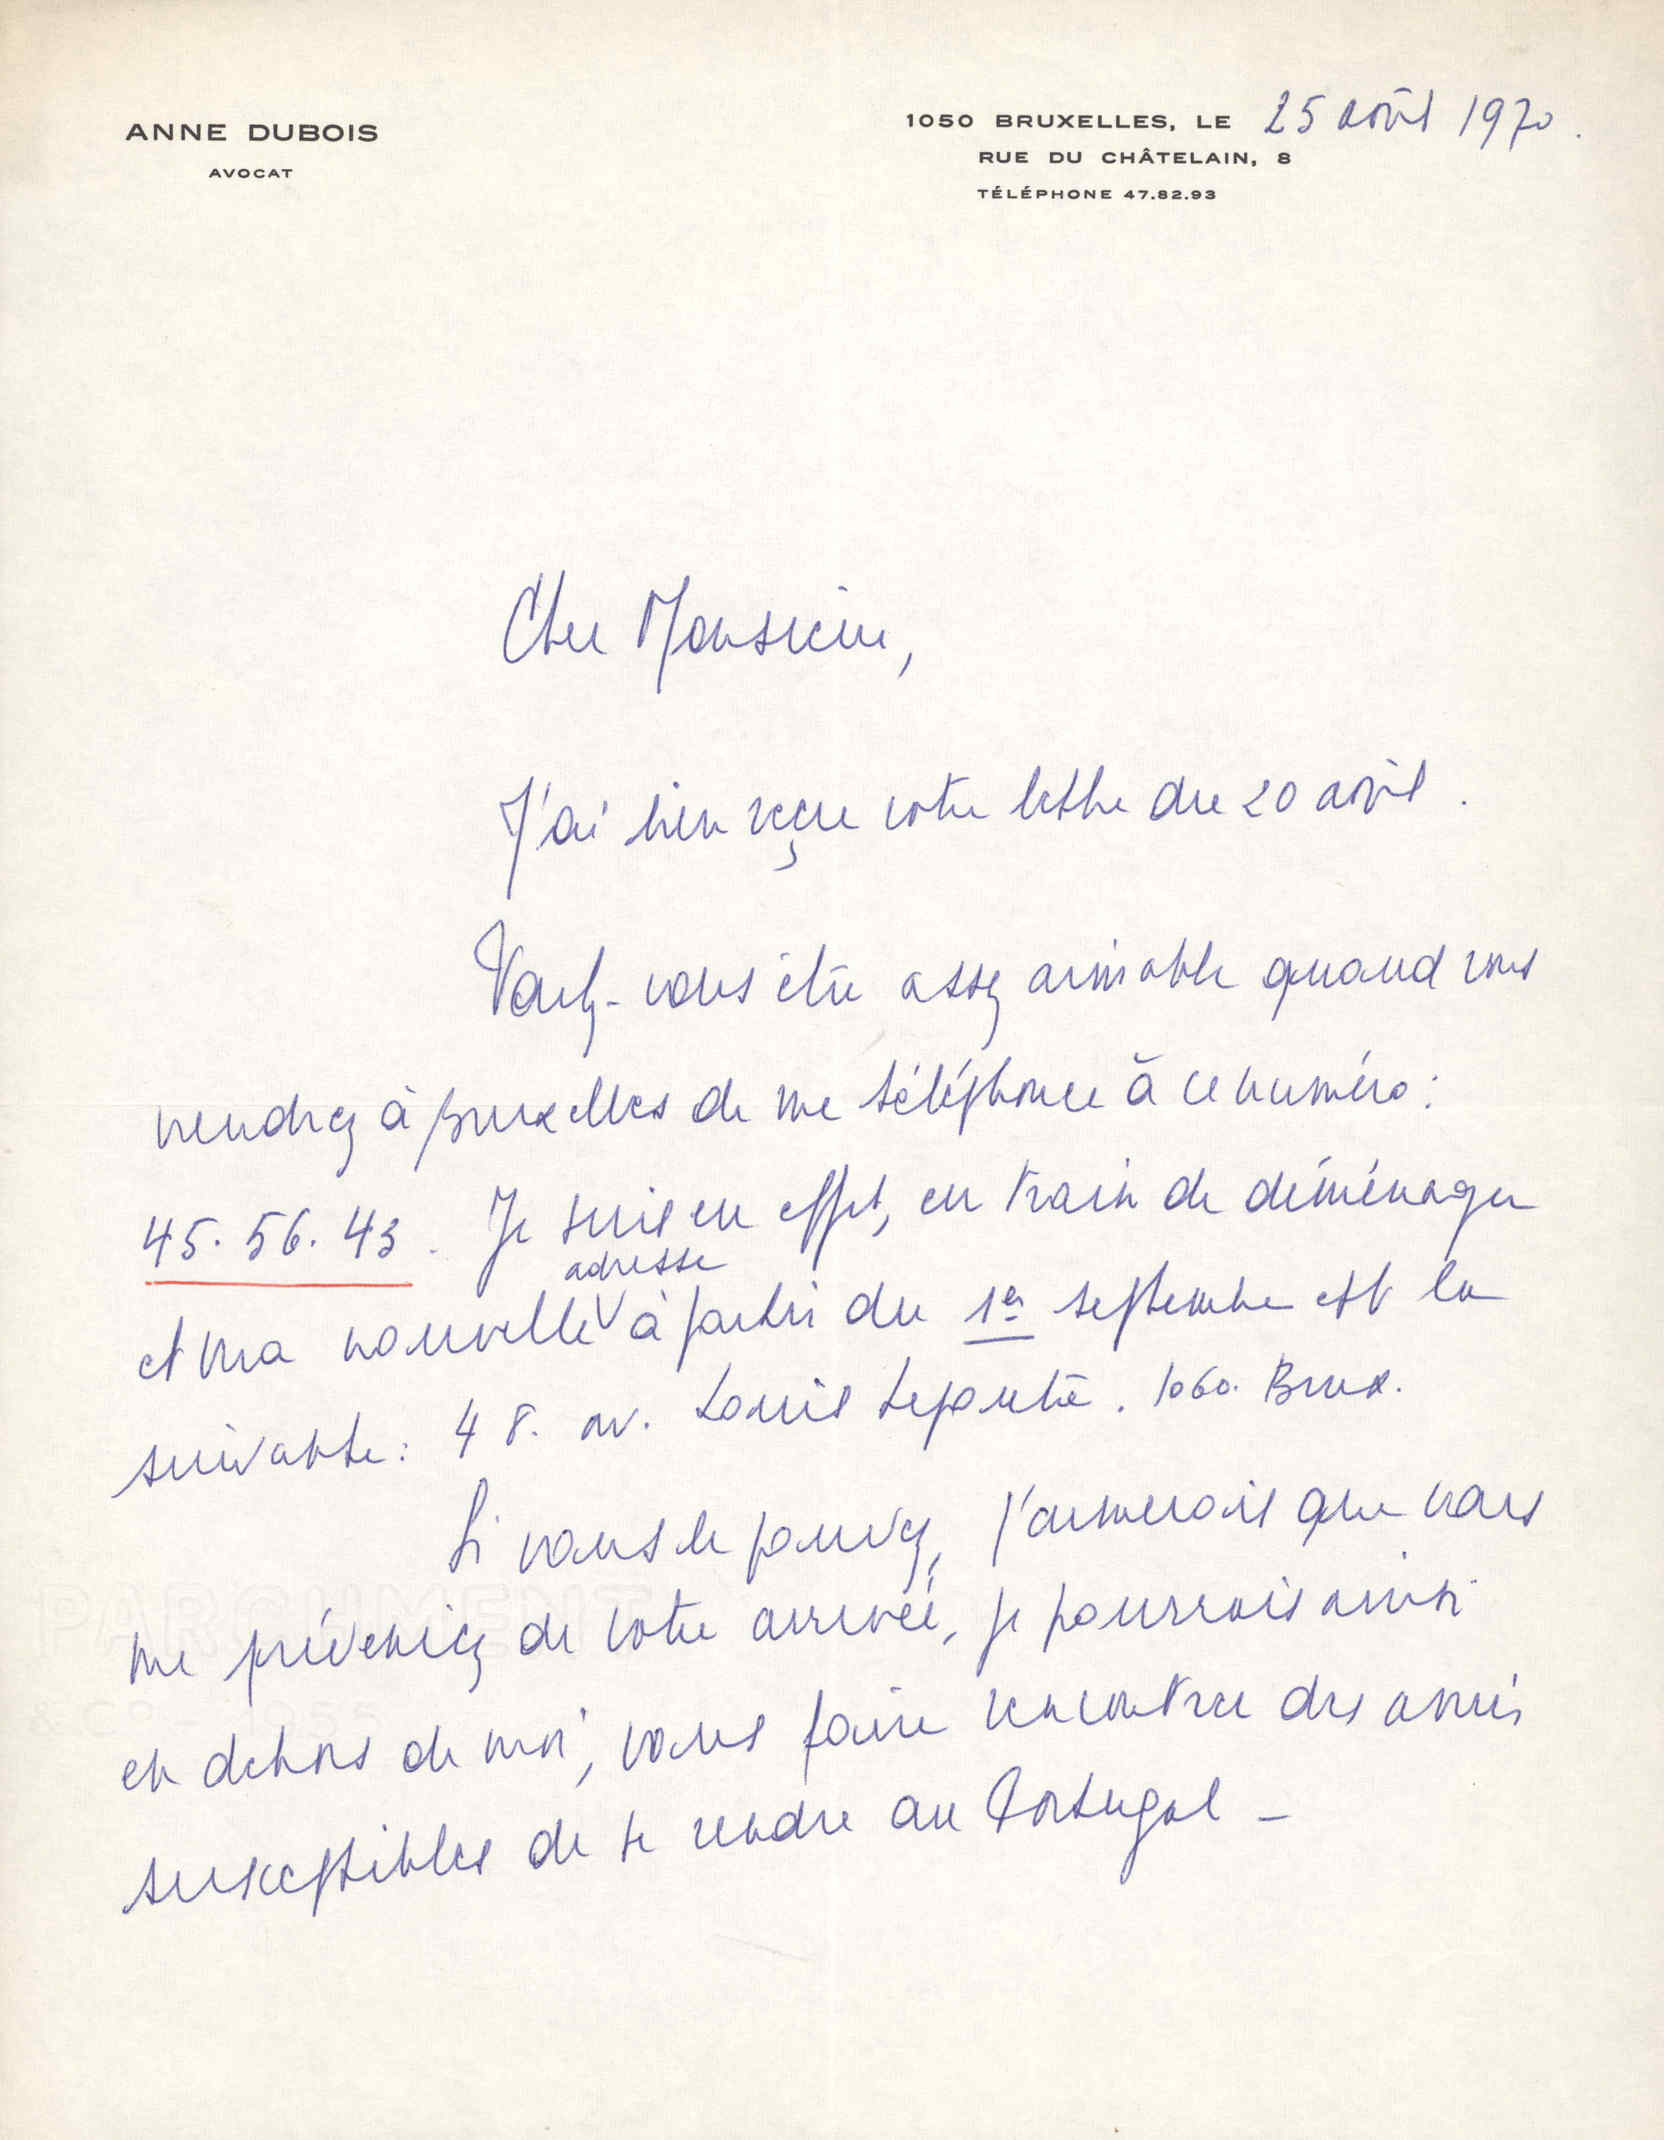 ANNE DUBOIS
AVOCAT
1050 BRUXELLES, LE 25 août 1970.
RUE DU CHÂTELAIN, 8
TÉLÉPHONE 47.82.93
Cher Monsieur,
J'ai bien reçu votre lettre du 20 août.
Voulez-vous être assez aimable quand vous
viendrez à Bruxelles de me téléphoner à ce numéro :
45.56.43. Je suis en effet, en train de déménager
adresse
et ma nouvelle V à partir du 1er septembre est la
suivante : 48. av. Louis Lepoutre. 1060. Brux.
Si vous le pouvez, j'aimerais que vous
me préveniez de votre arrivée, je pourrais ainsi
en dehors de moi, vous faire rencontrer des amis
susceptibles de se rendre au Portugal -
PARCHMENT